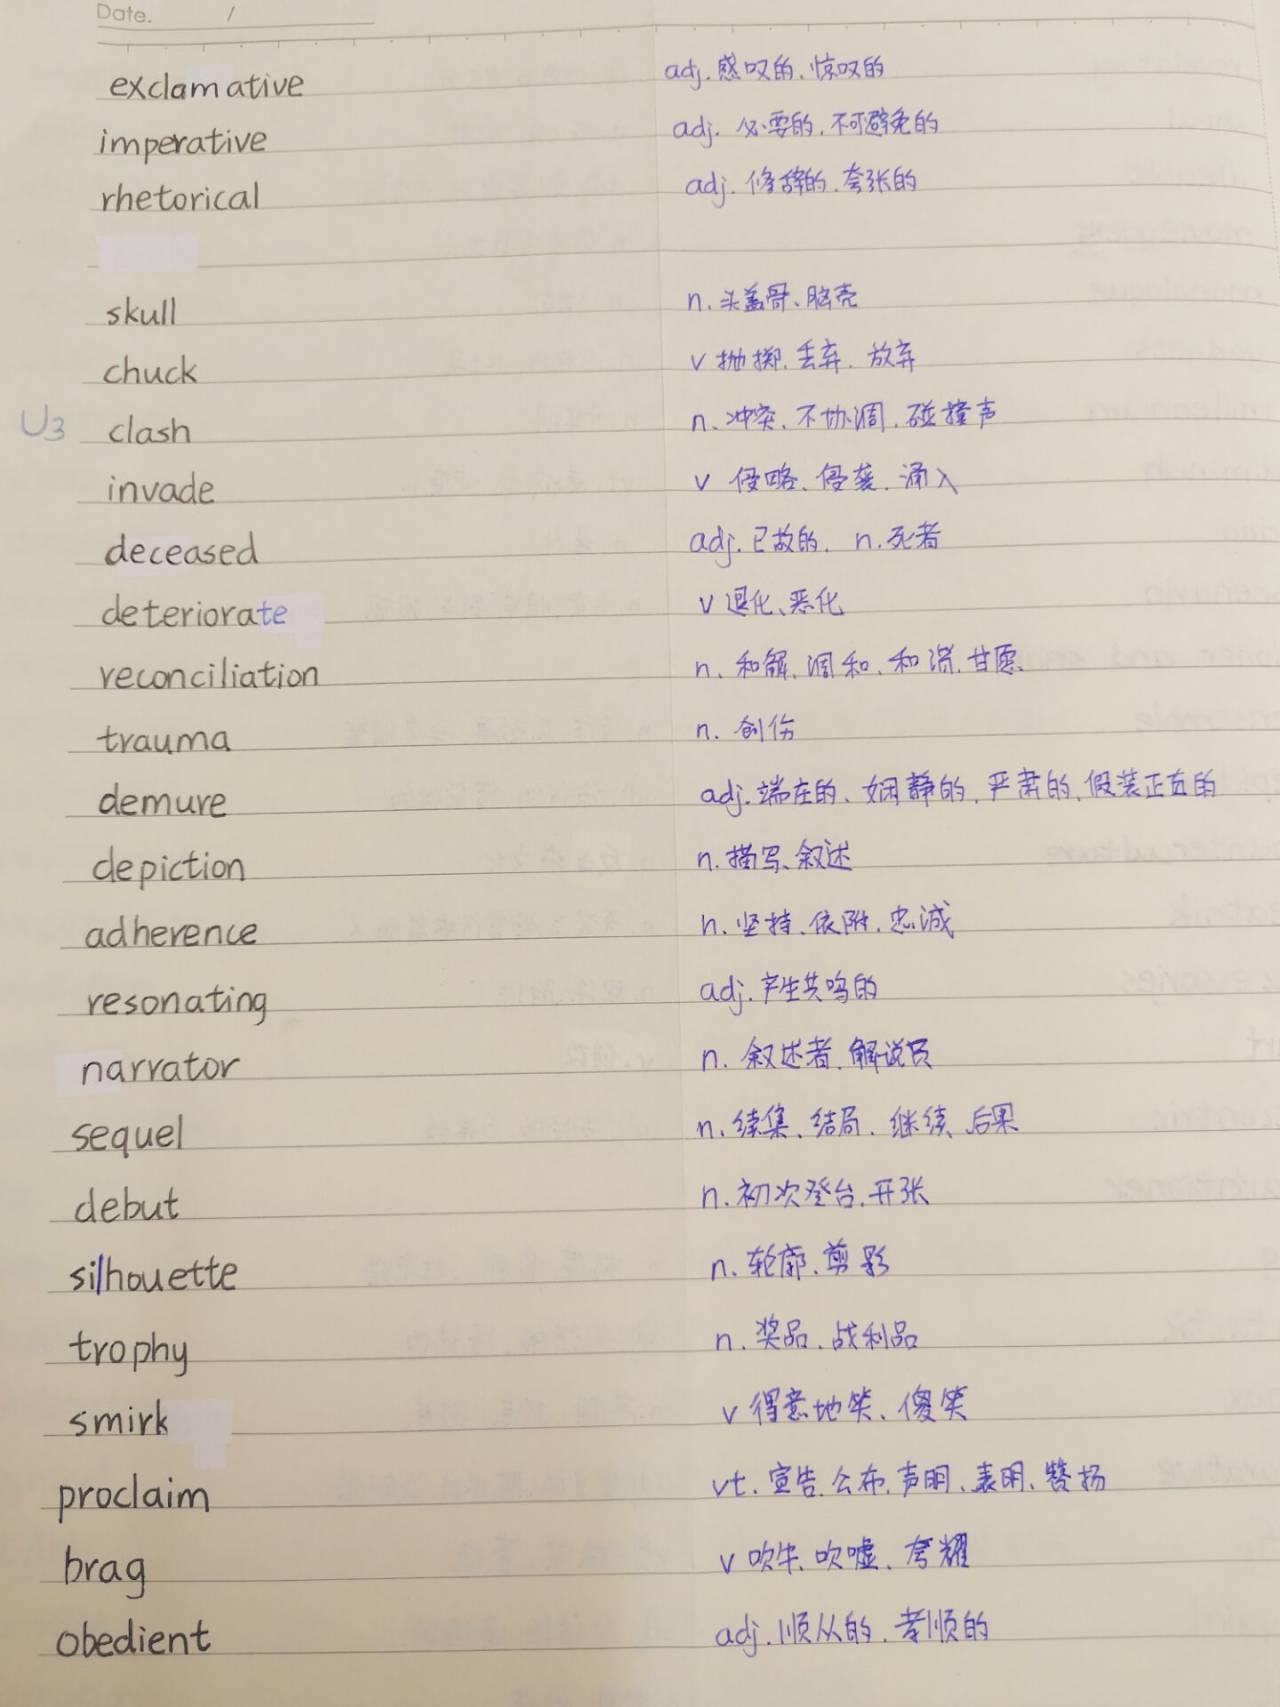 Date. /
exclamative adj. 感叹的、惊叹的
imperative adj. 必要的、不可避免的
rhetorical adj. 修辞的、夸张的
skull n. 头盖骨、脑壳
chuck v 抛掷、丢弃、放弃
U3 clash n. 冲突、不协调、碰撞声
invade v 侵略、侵袭、涌入
deceased adj. 已故的. n. 死者
deteriorate v 退化、恶化
reconciliation n. 和解、调和、和谐、甘愿.
trauma n. 创伤
demure adj. 端庄的、娴静的、严肃的、假装正直的
depiction n. 描写、叙述
adherence n. 坚持、依附、忠诚
resonating adj. 产生共鸣的
narrator n. 叙述者、解说员
sequel n. 续集、结局、继续、后果
debut n. 初次登台、开张
silhouette n. 轮廓、剪影
trophy n. 奖品、战利品
smirk v 得意地笑、傻笑
proclaim vt. 宣告、公布、声明、表明、赞扬
brag v 吹牛、吹嘘、夸耀
obedient adj. 顺从的、孝顺的